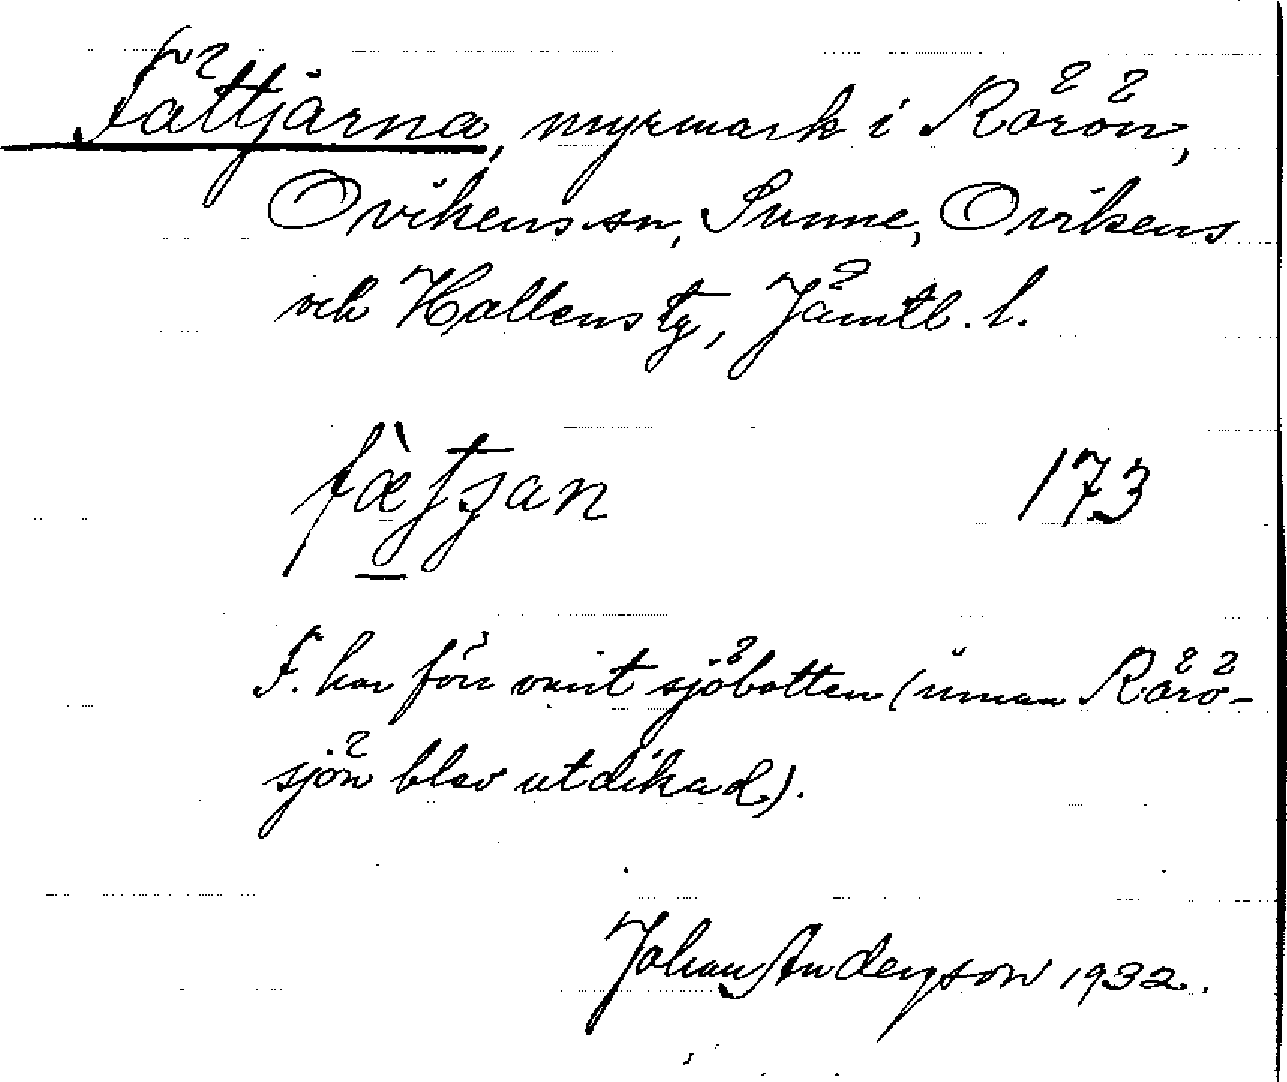 Fättjärna, myrmark i Rörön,
Ovikens sn, Sunne, Ovikens
och Hallens tg, Jämtl. l.
fæ̀tjan 173
F. har förr varit sjöbotten (innan Rörö-
sjön blev utdikad).
Johan Anderson 1932.